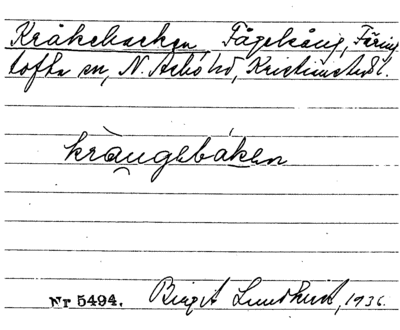 Kråkebacken Fågelsång, Färing
tofta sn, N. Åsbo hd, Kristianst. l.
kràu̯gebáken
Nr 5494. Birgit Lundkvist, 1936.